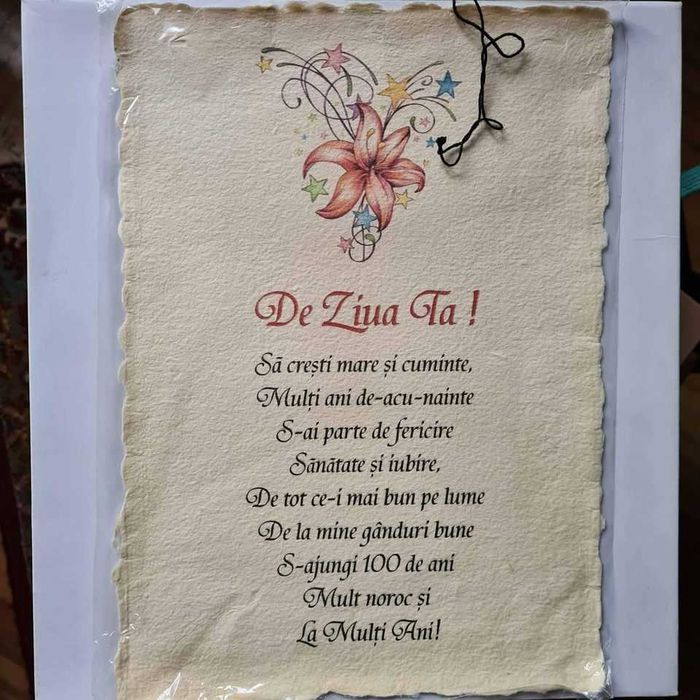 De Ziua Ta !
Să crești mare și cuminte,
Mulți ani de-acu-nainte
S-ai parte de fericire
Sănătate și iubire,
De tot ce-i mai bun pe lume
De la mine gânduri bune
S-ajungi 100 de ani
Mult noroc și
La Mulți Ani!